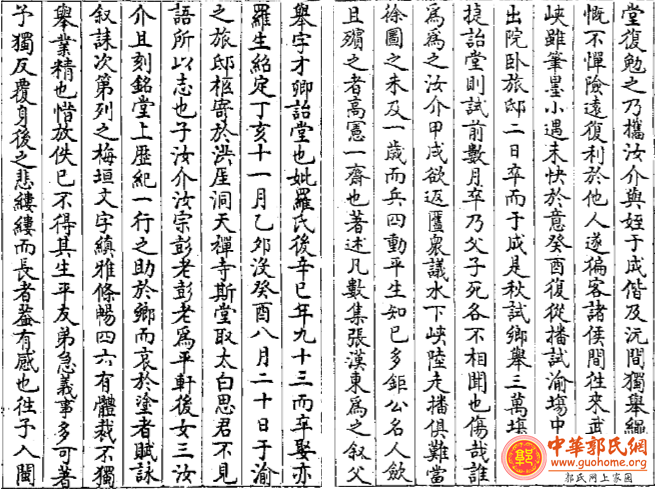 堂復勉之乃攜汝介與姪于成偕及沅間獨舉繩
慨不憚險遠復利於他人遂徧客諸侯間往來武
峡雖筆墨小遇未快於意癸酉復從播試渝塲中
出院卧旅邸二日卒而于成是秋試鄉舉三萬堪
捷詒堂則試前數月卒乃父子死各不相聞也傷哉誰
爲爲之汝介甲戌欲返匱衆議水下峡陸走播俱難當
徐圖之未及一歲而兵四動平生知已多鉅公名人斂
且殯之者高憲一齋也著述凡數集張漢東爲之叙父
舉字才卿詒堂也妣羅氏後辛巳年九十三而卒娶亦
羅生紹定丁亥十一月乙夘沒癸酉八月二十日于渝
之旅邸柩寄於洪厓洞天禪寺斯堂取太白思君不見
語所以志也子汝介汝宗彭老彭老爲平軒後女三汝
介且刻銘堂上歴紀一行之助於鄉而哀於塗者賦詠
叙誄次第列之梅垣文字縝雅條暢四六有體裁不獨
舉業精也惜放佚已不得其生平友弟急義事多可著
予獨反覆身後之悲縷縷而長者葢有感也徃子入閩
中華郭氏網
www.guohome.org
郭氏网上家园